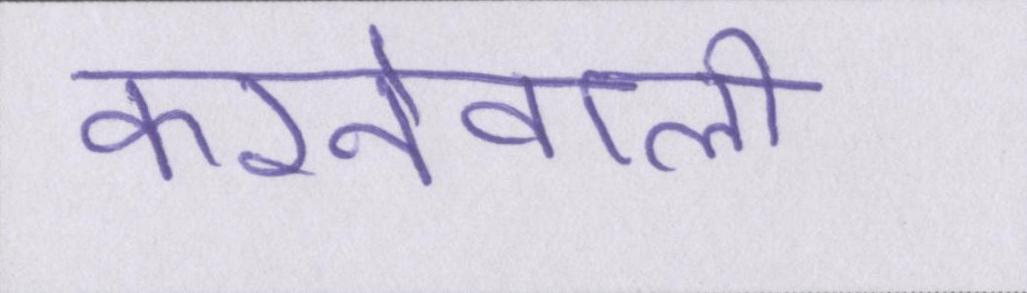 करनेवाली